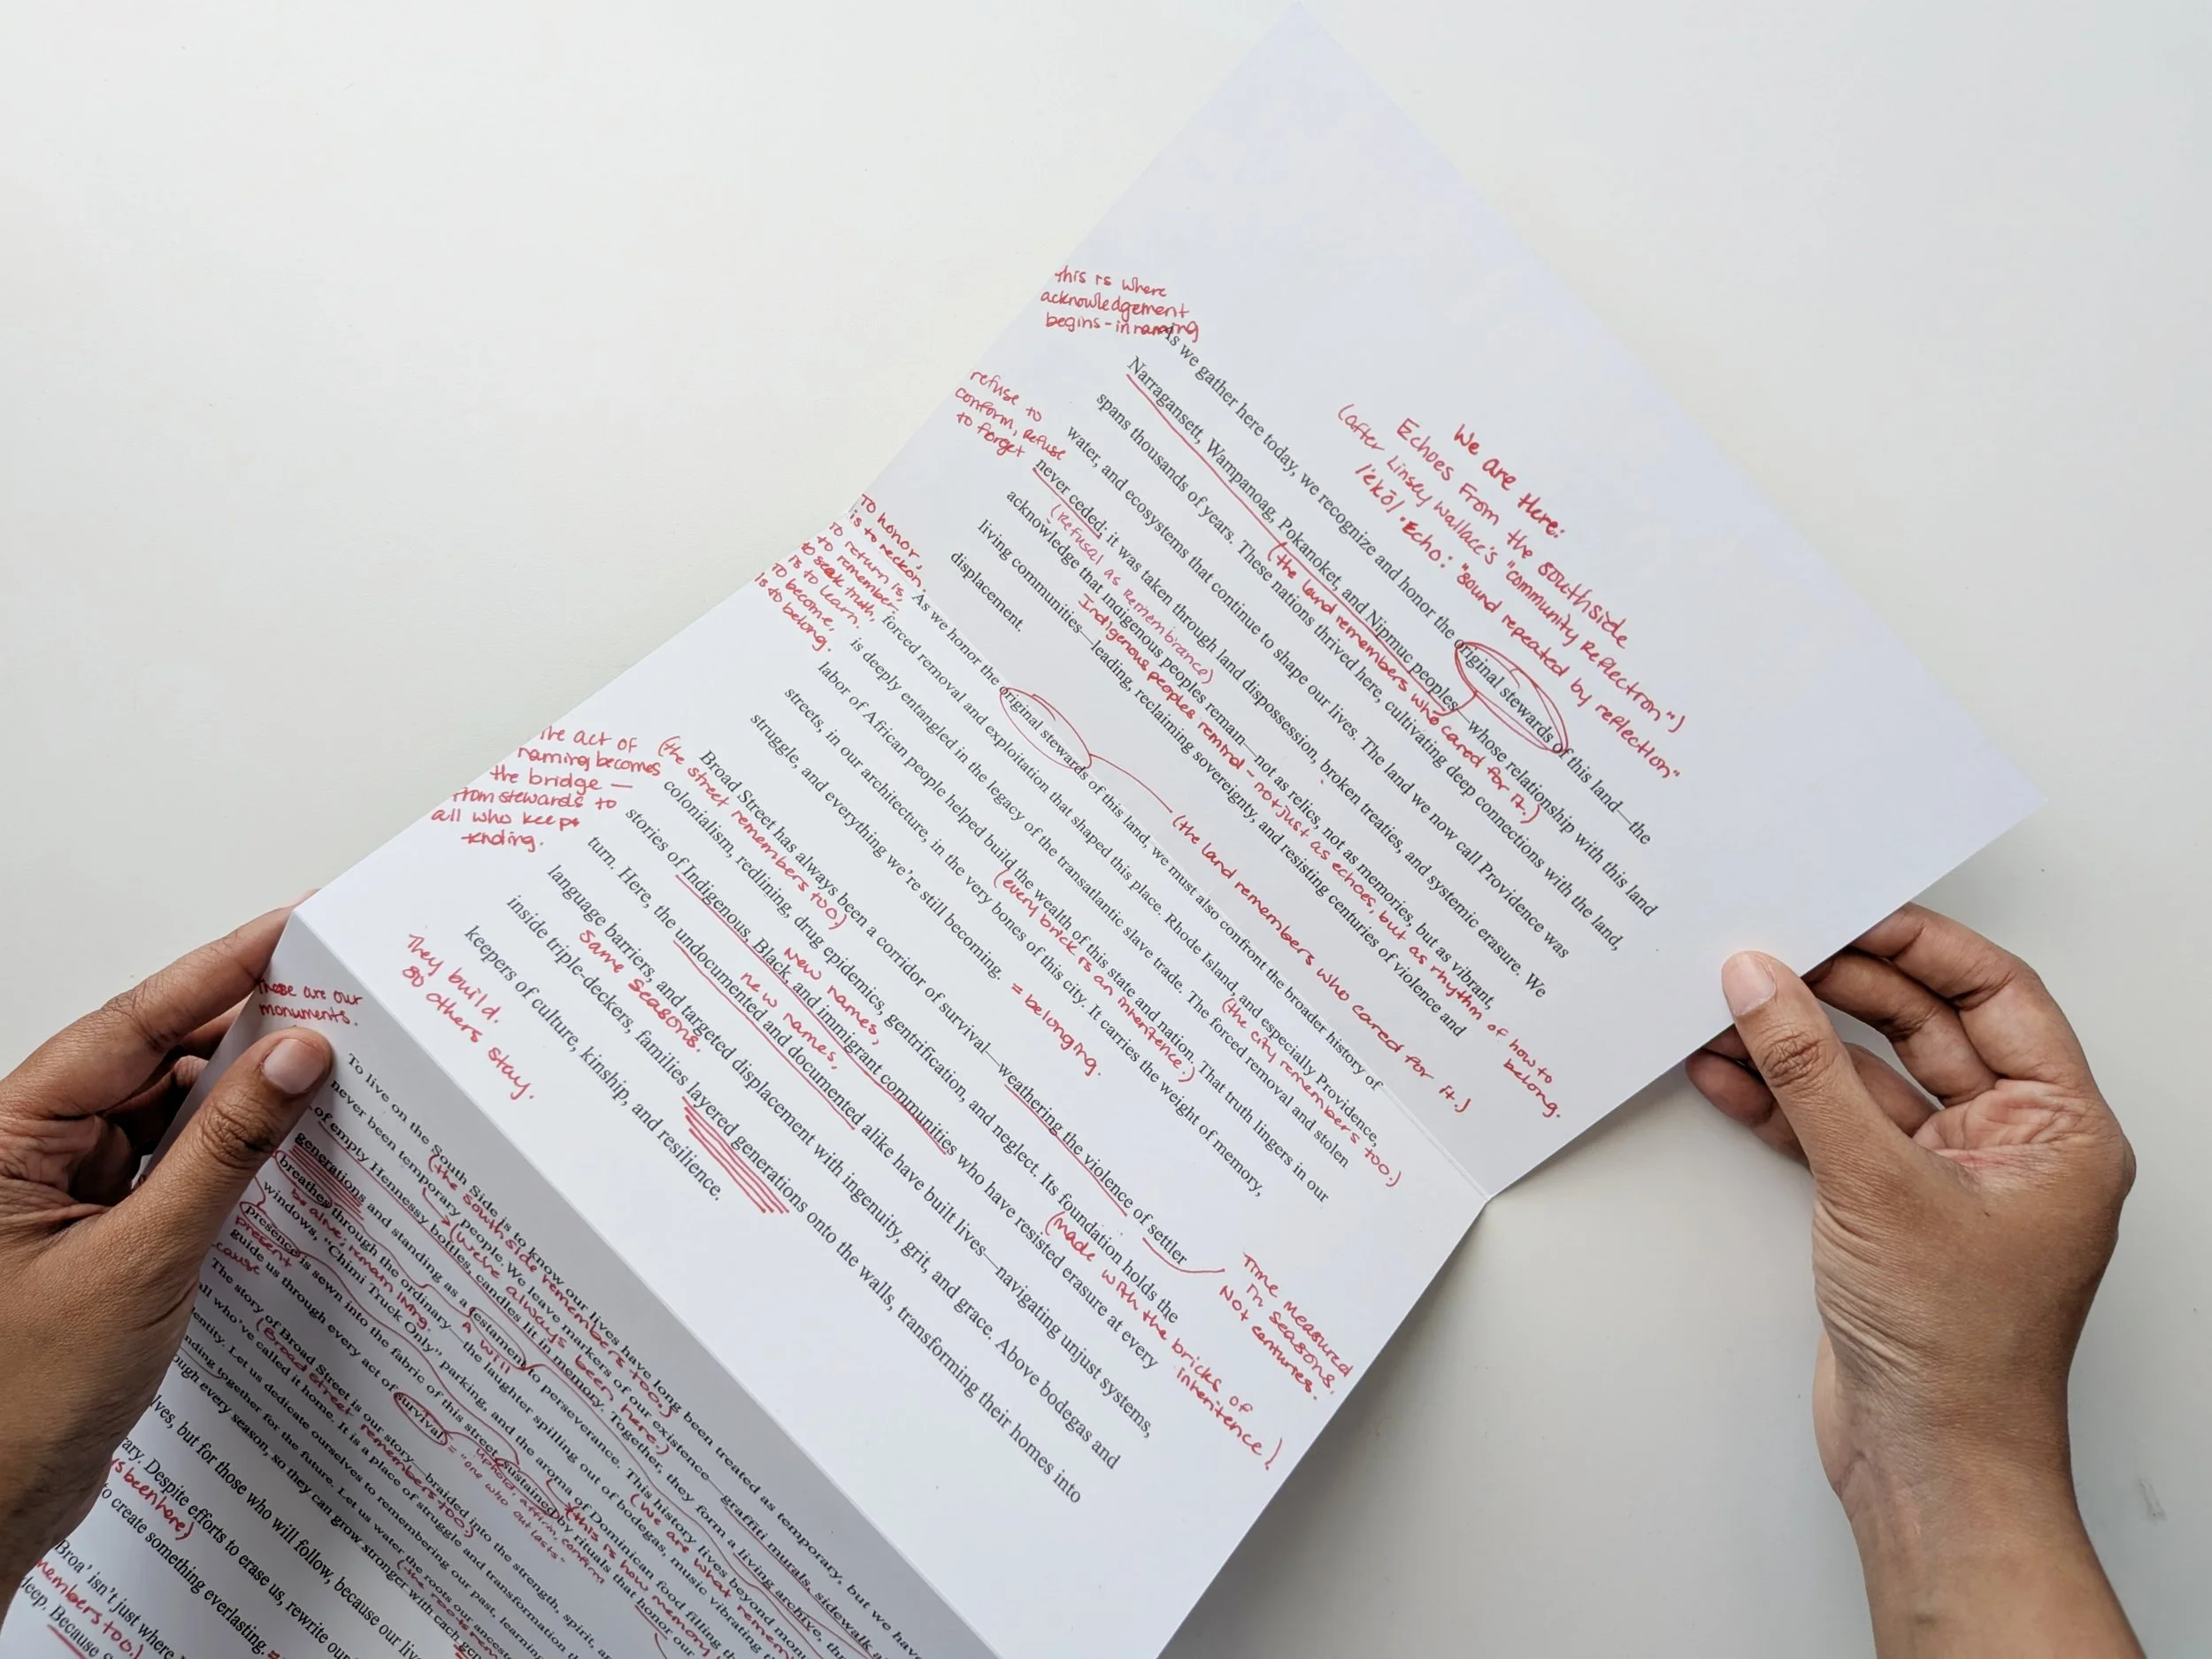 We are Here:
Echoes From the southside
(after Linsey Wallace's "community Reflection")
/'ekō/ • Echo: "sound repeated by reflection"
this is where
acknowledgement
begins - in naming
As we gather here today, we recognize and honor the original stewards of this land—the
Narragansett, Wampanoag, Pokanoket, and Nipmuc peoples—whose relationship with this land
(the land remembers who cared for it.)
spans thousands of years. These nations thrived here, cultivating deep connections with the land,
water, and ecosystems that continue to shape our lives. The land we now call Providence was
refuse to
conform, refuse
to forget
never ceded; it was taken through land dispossession, broken treaties, and systemic erasure. We
(Refusal as remembrance)
acknowledge that Indigenous peoples remain—not as relics, not as memories, but as vibrant,
Indigenous peoples remind - not just as echoes, but as rhythm of how to
belong.
living communities—leading, reclaiming sovereignty, and resisting centuries of violence and
displacement.
(the land remembers who cared for it.)
To honor,
is to reckon,
To return is,
to remember.
to seek truth,
is to learn.
To become,
is to belong.
As we honor the original stewards of this land, we must also confront the broader history of
forced removal and exploitation that shaped this place. Rhode Island, and especially Providence,
(the city remembers too.)
is deeply entangled in the legacy of the transatlantic slave trade. The forced removal and stolen
labor of African people helped build the wealth of this state and nation. That truth lingers in our
(every brick is an inheritence.)
streets, in our architecture, in the very bones of this city. It carries the weight of memory,
struggle, and everything we're still becoming. = belonging.
the act of
naming becomes
the bridge —
from stewards to
all who keep
tending.
Broad Street has always been a corridor of survival—weathering the violence of settler
(the street remembers too.)
Time measured
in seasons.
Not centuries.
colonialism, redlining, drug epidemics, gentrification, and neglect. Its foundation holds the
(made with the bricks of
inheritence)
stories of Indigenous, Black, and immigrant communities who have resisted erasure at every
New names,
turn. Here, the undocumented and documented alike have built lives—navigating unjust systems,
new names,
same seasons.
language barriers, and targeted displacement with ingenuity, grit, and grace. Above bodegas and
inside triple-deckers, families layered generations onto the walls, transforming their homes into
keepers of culture, kinship, and resilience.
They build.
so others stay.
These are our
monuments.
To live on the South Side is to know our lives have long been treated as temporary, but we have
(the southside remembers too.)
never been temporary people. We leave markers of our existence—graffiti murals, sidewalk
(We've always been here.)
of empty Hennessy bottles, candles lit in memory. Together, they form a living archive,
generations and standing as a testament to perseverance. This history lives beyond
A will
(we are what
breathes through the ordinary—the laughter spilling out of bodegas, music vibrating
be alive; remain living.
windows, "Chimi Truck Only" parking, and the aroma of Dominican food filling
*(this is how memory
presence is sewn into the fabric of this street, sustained by rituals that honor our
present
uphold, affirm, confirm
guide us through every act of survival = "one who outlasts"
cause
The story of Broad Street is our story—braided into the strength, spirit,
(Broad Street remembers too.)
all who've called it home. It is a place of struggle and transformation
Let us dedicate ourselves to remembering our past, learning
together for the future. Let us water the roots our
(the roots
every season, so they can grow stronger with each
but for those who will follow, because our
Despite efforts to erase us, rewrite our
been here)
to create something everlasting.
Broa' isn't just where
too.)
deep. Because